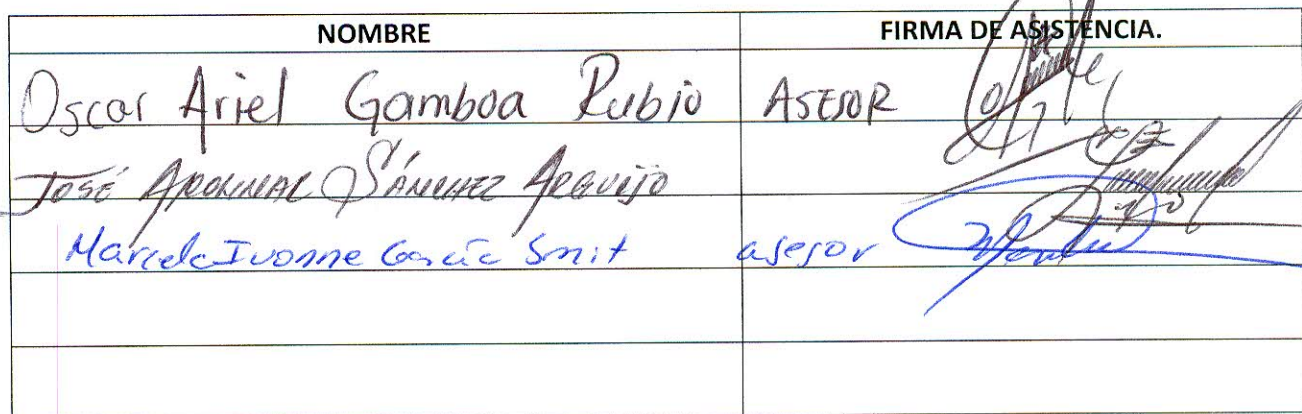 NOMBRE FIRMA DE ASISTENCIA.
Oscar Ariel Gamboa Rubio ASESOR
JOSÉ SÁNCHEZ ARGUIJO
Marcela Ivonne García Smit asesor